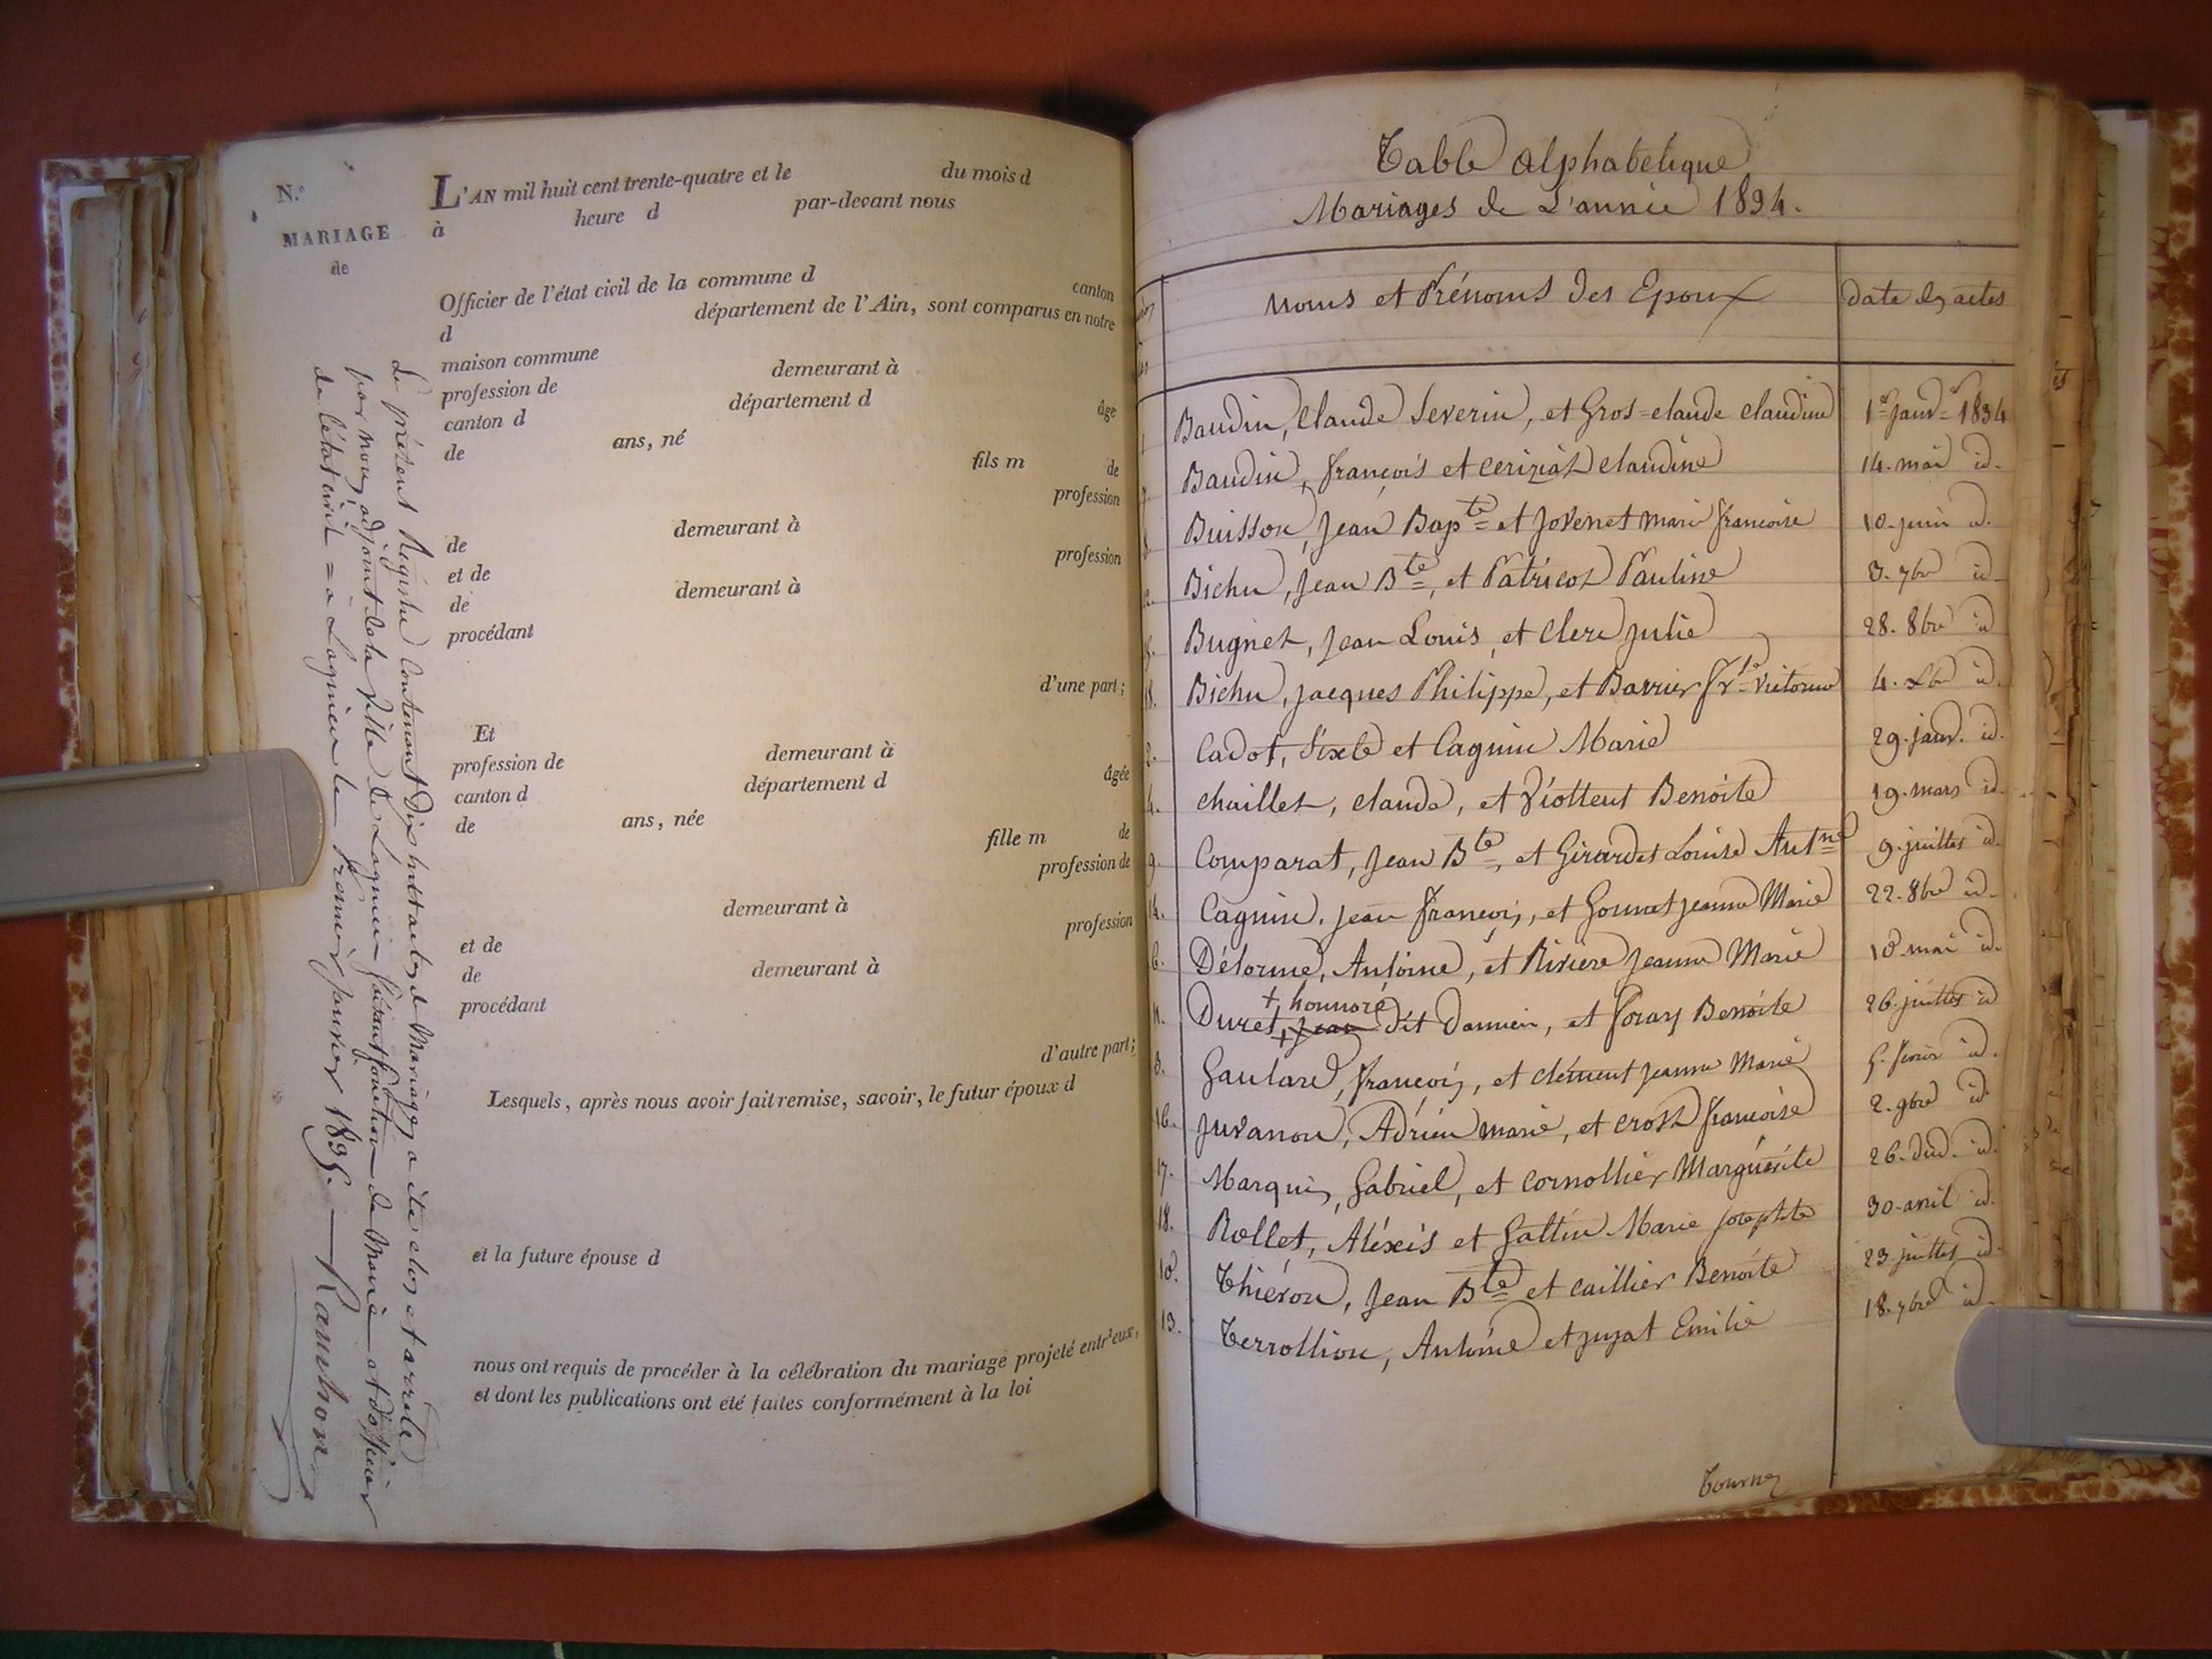 N.º
MARIAGE
de
L'AN mil huit cent trente-quatre et le du mois d
à heure d par-devant nous
Officier de l'état civil de la commune d canton
d département de l'Ain, sont comparus en notre
maison commune
profession de demeurant à
canton d département d âgé
de ans, né
fils m de
profession
de demeurant à
et de profession
de demeurant à
procédant
d'une part;
Et
profession de demeurant à
canton d département d âgée
de ans, née
fille m de
profession de
demeurant à
et de profession
de demeurant à
procédant
d'autre part;
Lesquels, après nous avoir fait remise, savoir, le futur époux d
et la future épouse d
nous ont requis de procéder à la célébration du mariage projeté entr'eux,
et dont les publications ont été faites conformément à la loi
Le présent Régistre Contenant Dix huit actes de Mariages a été clos et arrêté
par nous, adjoint de la Ville de Lagnieu faisant fonction de Maire et d'officier
de l'état civil = à Lagnieu le Premier janvier 1835. — Rambon
Table alphabétique
Mariages de L'année 1834.
Noms et Prénoms des Epoux date des actes
Baudin, Claude Severin, et Gros=claude claudine 1er Janv=r 1834
Baudin, françois et ceriziat claudine 14. mai id.
Buisson, Jean Bapte et Jovenet marie francoise 10. juin id.
Bichu, Jean Bte, et Patricot Pauline 3. 7bre id.
Bugnet, Jean Louis, et Clerc julie 28. 8bre id
18. Bichu, jacques Philippe, et Barrier frse victorine 4. Xbre id.
2. Cadot, Sixte et Cagnin Marie 29. janv. id.
4. chaillet, claude, et Viottent Benoite 19. mars id.
9. Comparat, Jean Bte, et Girardet Louise Antne 9. juillet id.
14. Cagnin, jean François, et Gounet jeanne Marie 22. 8bre id.
6. Délorme, Antoine, et Riviere jeanne Marie 10. mai id.
+ honnoré
11. Duret, + Jean dit Damien, et foray Benoite 26. juillet id
3. Gaulard, françois, et clément jeanne Marie 5. fevrier id.
16. Juvanon, Adrien marie, et crost francoise 2. 9bre id.
17. Marquis, Gabriel, et Cornollier Marguérite 26. dud. id.
18. Rollet, Aléxis et Gallin Marie josephte 30. avril id.
10. Thiéron, Jean Bte et caillier Benoite 23. juillet id.
13. Terrollion, Antoine et jujat Emilie 18. 7bre id.
Tournez